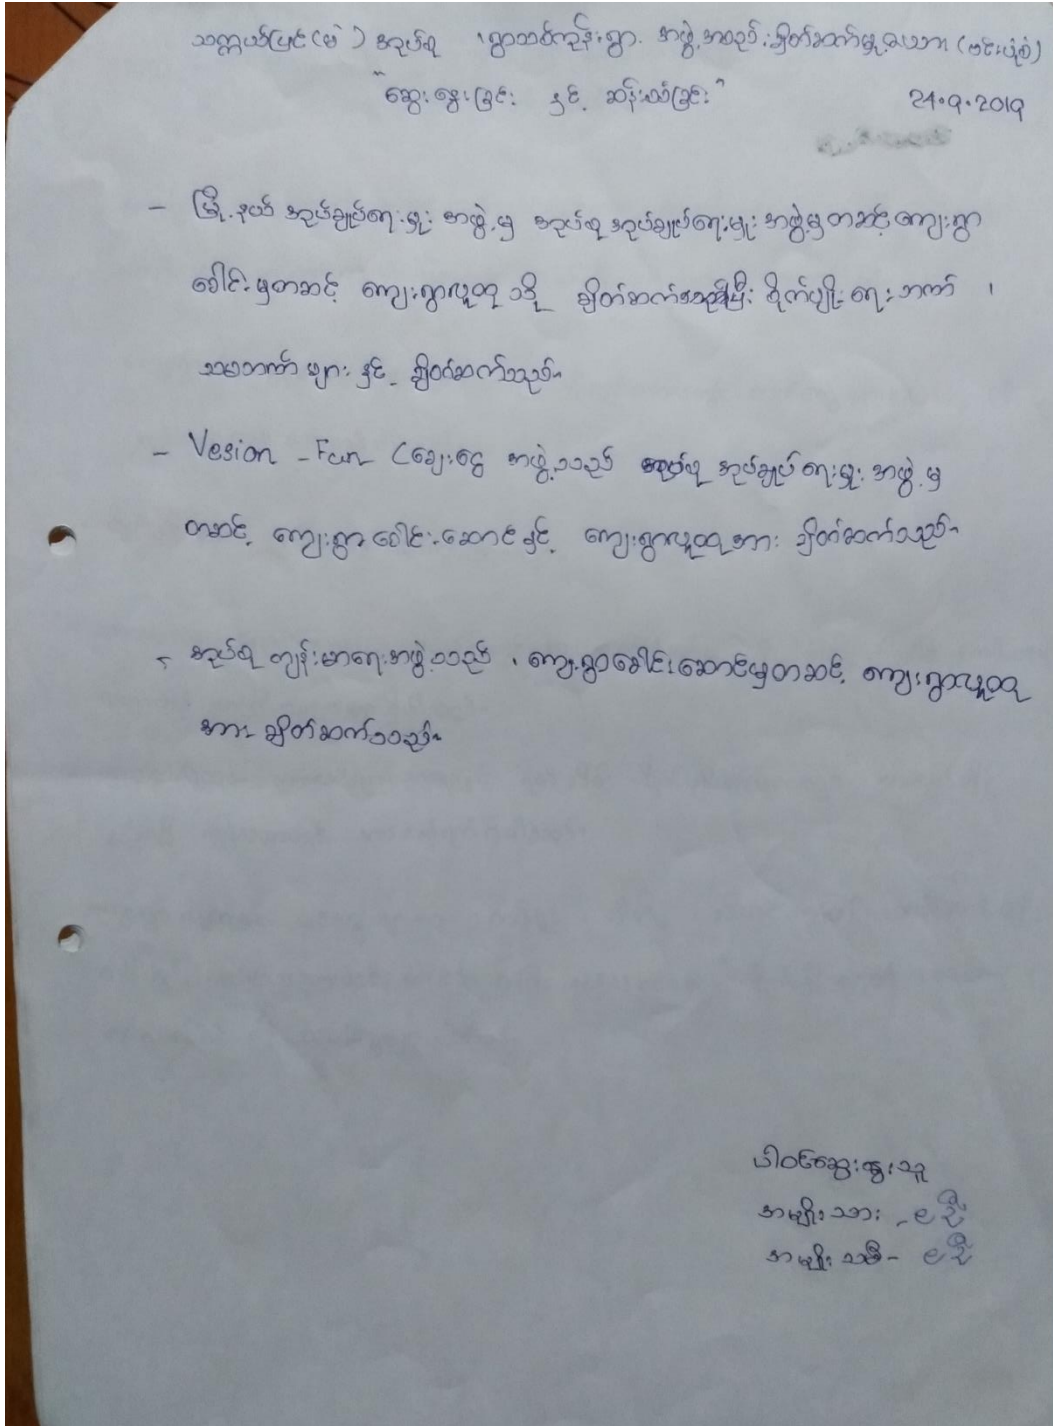 သက္ကယ်ပြင်(မဲ) အုပ်စု ၊ ရွာသစ်ကုန်းရွာ အဖွဲ့အစည်းချိတ်ဆက်မှုယေား (ဗင်းပုံစံ)
"ဆွေးနွေးခြင်း နှင့် ဆန်းသစ်ခြင်း" 24.9.2019
– မြို့နယ် အုပ်ချုပ်ရေးမှူး အဖွဲ့မှ အုပ်စု အုပ်ချုပ်ရေးမှူး အဖွဲ့မှတဆင့် ကျေးရွာ
ခေါင်းမှတဆင့် ကျေးရွာလူထု သို့ ချိတ်ဆက်သည်။ပြီး စိုက်ပျိုးရေးဘဏ် ၊
သမဘဏ် များ နှင့် ချိတ်ဆက်သည်။
– Vesion – Fun (ချေးငွေ အဖွဲ့သည် အုပ်စု အုပ်ချုပ်ရေးမှူး အဖွဲ့မှ
တဆင့် ကျေးရွာခေါင်းဆောင်နှင့် ကျေးရွာလူထုအား ချိတ်ဆက်သည်။
– အုပ်စု ကျန်းမာရေးအဖွဲ့သည် ၊ ကျေးရွာခေါင်းဆောင်မှတဆင့် ကျေးရွာလူထု
အား ချိတ်ဆက်သည်။
ပါဝင်ဆွေးနွေးသူ
အမျိုးသား – ၉ ဦး
အမျိုးသမီး – ၉ ဦး